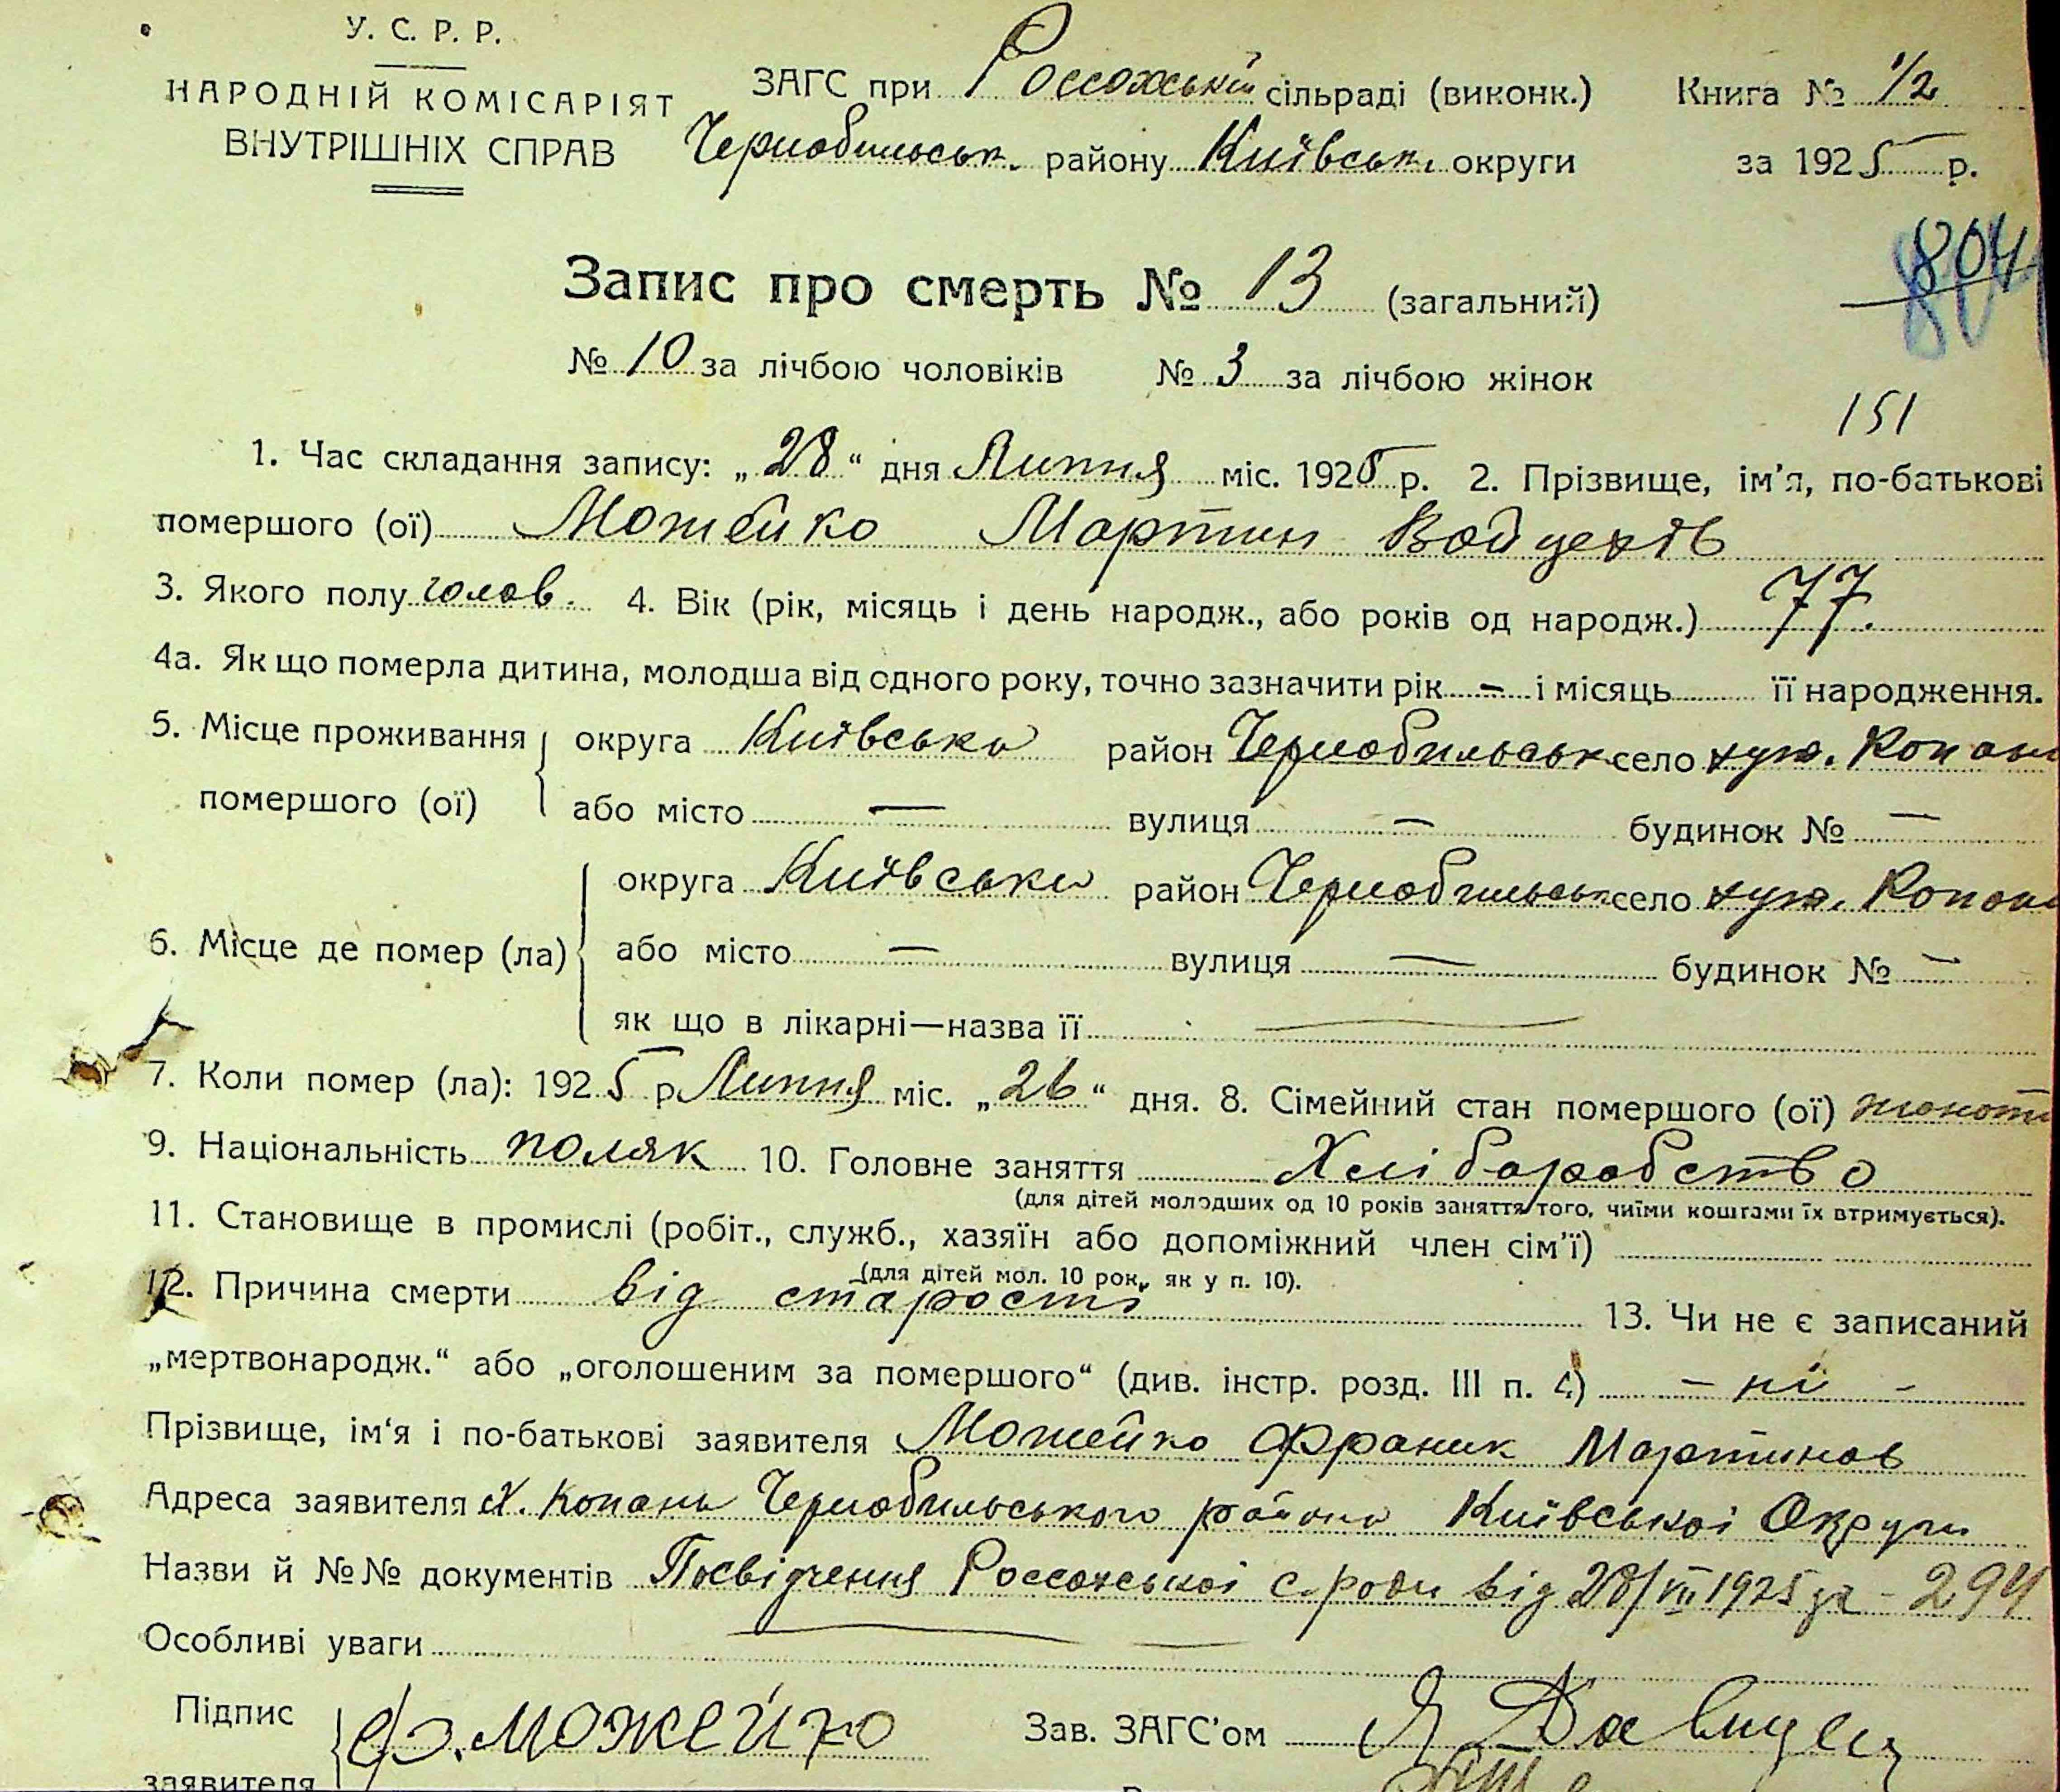 У. С. Р. Р.
НАРОДНІЙ КОМІСАРІЯТ
ВНУТРІШНІХ СПРАВ
ЗАГС при Россохській сільраді (виконк.) Книга № 1/2
Чернобильськ. району Київськ. округи за 1925 р.
804
804
Запис про смерть № 13 (загальний)
№ 10 за лічбою чоловіків № 3 за лічбою жінок
151
1. Час складання запису: „28“ дня Липня міс. 1925 р. 2. Прізвище, ім'я, по-батькові
помершого (ої) Можейко Мартин Войцехів
3. Якого полу чолов. 4. Вік (рік, місяць і день народж., або років од народж.) 77.
4а. Як що померла дитина, молодша від одного року, точно зазначити рік – і місяць її народження.
5. Місце проживання помершого (ої) округа Київська район Чернобильськ село хут. Копани
або місто — вулиця — будинок № —
6. Місце де помер (ла) округа Київська район Чернобильськ село хут. Копани
або місто — вулиця — будинок № —
як що в лікарні—назва її
7. Коли помер (ла): 1925 р. Липня міс. „26“ дня. 8. Сімейний стан помершого (ої)
9. Національність поляк 10. Головне заняття Хліборобство
(для дітей молодших од 10 років заняття того, чиїми коштами їх втримується).
11. Становище в промислі (робіт., служб., хазяїн або допоміжний член сім'ї)
(для дітей мол. 10 рок., як у п. 10).
12. Причина смерти від старості 13. Чи не є записаний
„мертвонародж.“ або „оголошеним за помершого“ (див. інстр. розд. III п. 4) – ні –
Прізвище, ім'я і по-батькові заявителя Можейко Франик Мартинов
Адреса заявителя х. Копани Чернобильського району Київської Округи
Назви й №№ документів Посвідчення Россохської с-ради від 28/VII 1925 за – 294
Особливі уваги
Підпис заявителя Фр. Можейко Зав. ЗАГС'ом